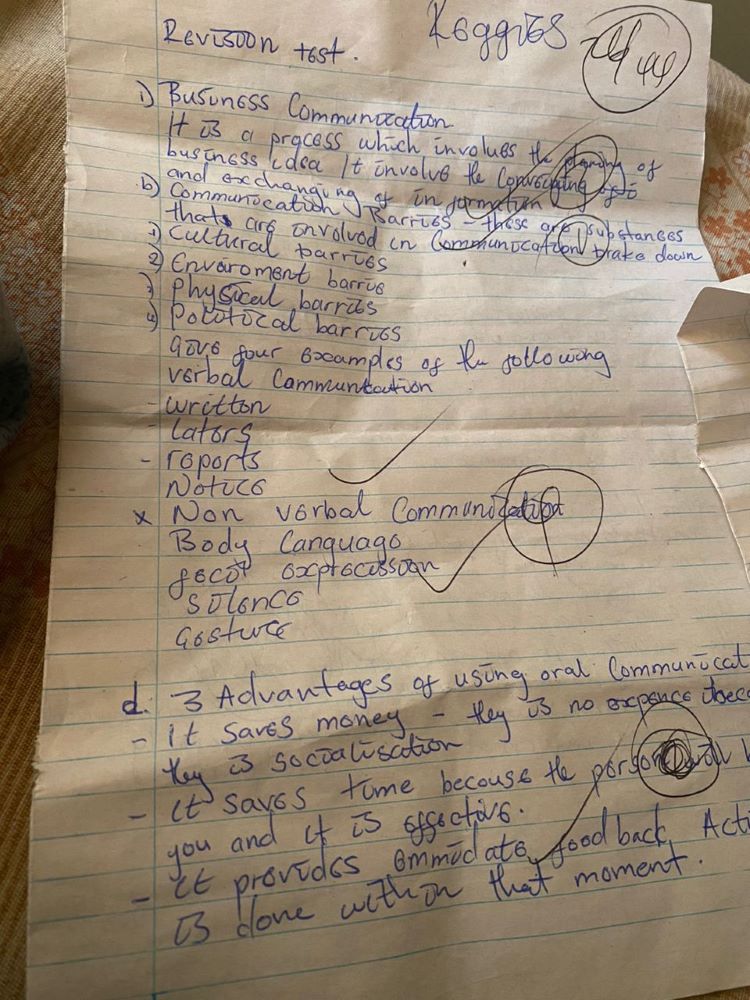 Revision test. Keggies
1) Business Communication
It is a process which involves the of
business idea It involve the Conveying of
and exchanging of information
b) Communication Barries - these are substances
that are involved in Communication brake down
1) Cultural barries
2) Enviroment barrie
3) Physical barries
4) Political barries
Give four examples of the following
verbal Communication
- written
- laters
- reports
Notice
x Non verbal Communication
Body Language
expression
Silence
Gesture
d. 3 Advantages of using oral Communicat
- It saves money - they is no expence
they is socialisation
- It saves time because the person
you and it is effective.
- It provides emmidate feedback. Acti
is done within that moment.